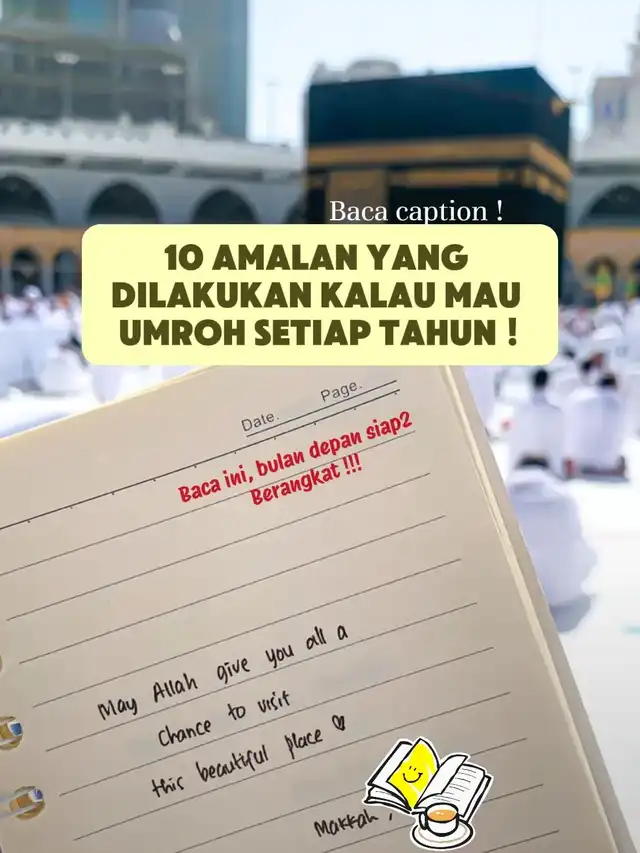 Baca caption !
10 AMALAN YANG
DILAKUKAN KALAU MAU
UMROH SETIAP TAHUN !
Date.
Page.
Baca ini, bulan depan siap2
Berangkat !!!
May Allah give you all a
Chance to visit
this beautiful place
Makkah ,